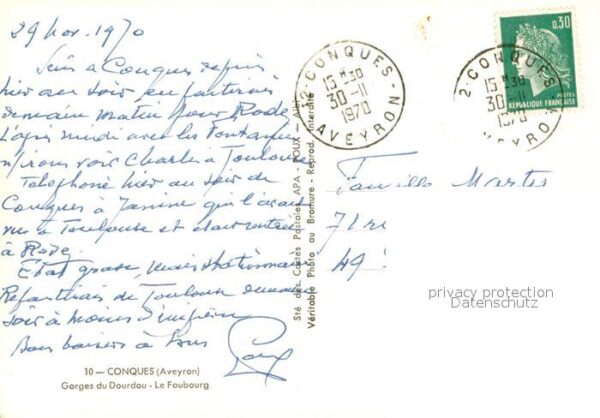 29 Nov. 1970
Suis à Conques depuis
hier au soir, en
demain matin pour Rodez
L'après midi avec les
n/irons voir Charles à Toulouse
Telephoné hier au soir de
Conques à Janine qui l'avait
vu à Toulouse et était rentrée
à Rodez.
Etat grave, mais stationnaire
de Toulouse demain
soir à moins d'imprévu
Bons baisers à tous
10 — CONQUES (Aveyron)
Gorges du Dourdou - Le Foubourg
Sté des Cartes Postales APA - POUX - Albi
Véritable Photo au Bromure - Reprod. Interdite
12 - CONQUES -
15 H 30
30 - 11
1970
AVEYRON
0,30
POSTES
REPUBLIQUE FRANÇAISE
12 - CONQUES -
15 H 30
30 - 11
1970
AVEYRON
Famille
49
privacy protection
Datenschutz